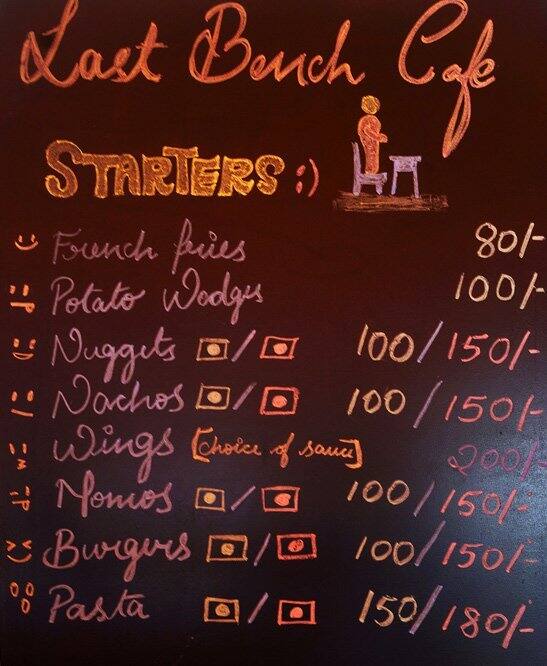 Last Bench Cafe
STARTERS :)
:) French fries 80/-
:P Potato Wedges 100/-
:D Nuggets / 100/150/-
:/ Nachos / 100/150/-
Wings [choice of sauce] 200/-
:P Momos / 100/150/-
Burgers / 100/150/-
Pasta / 150/180/-